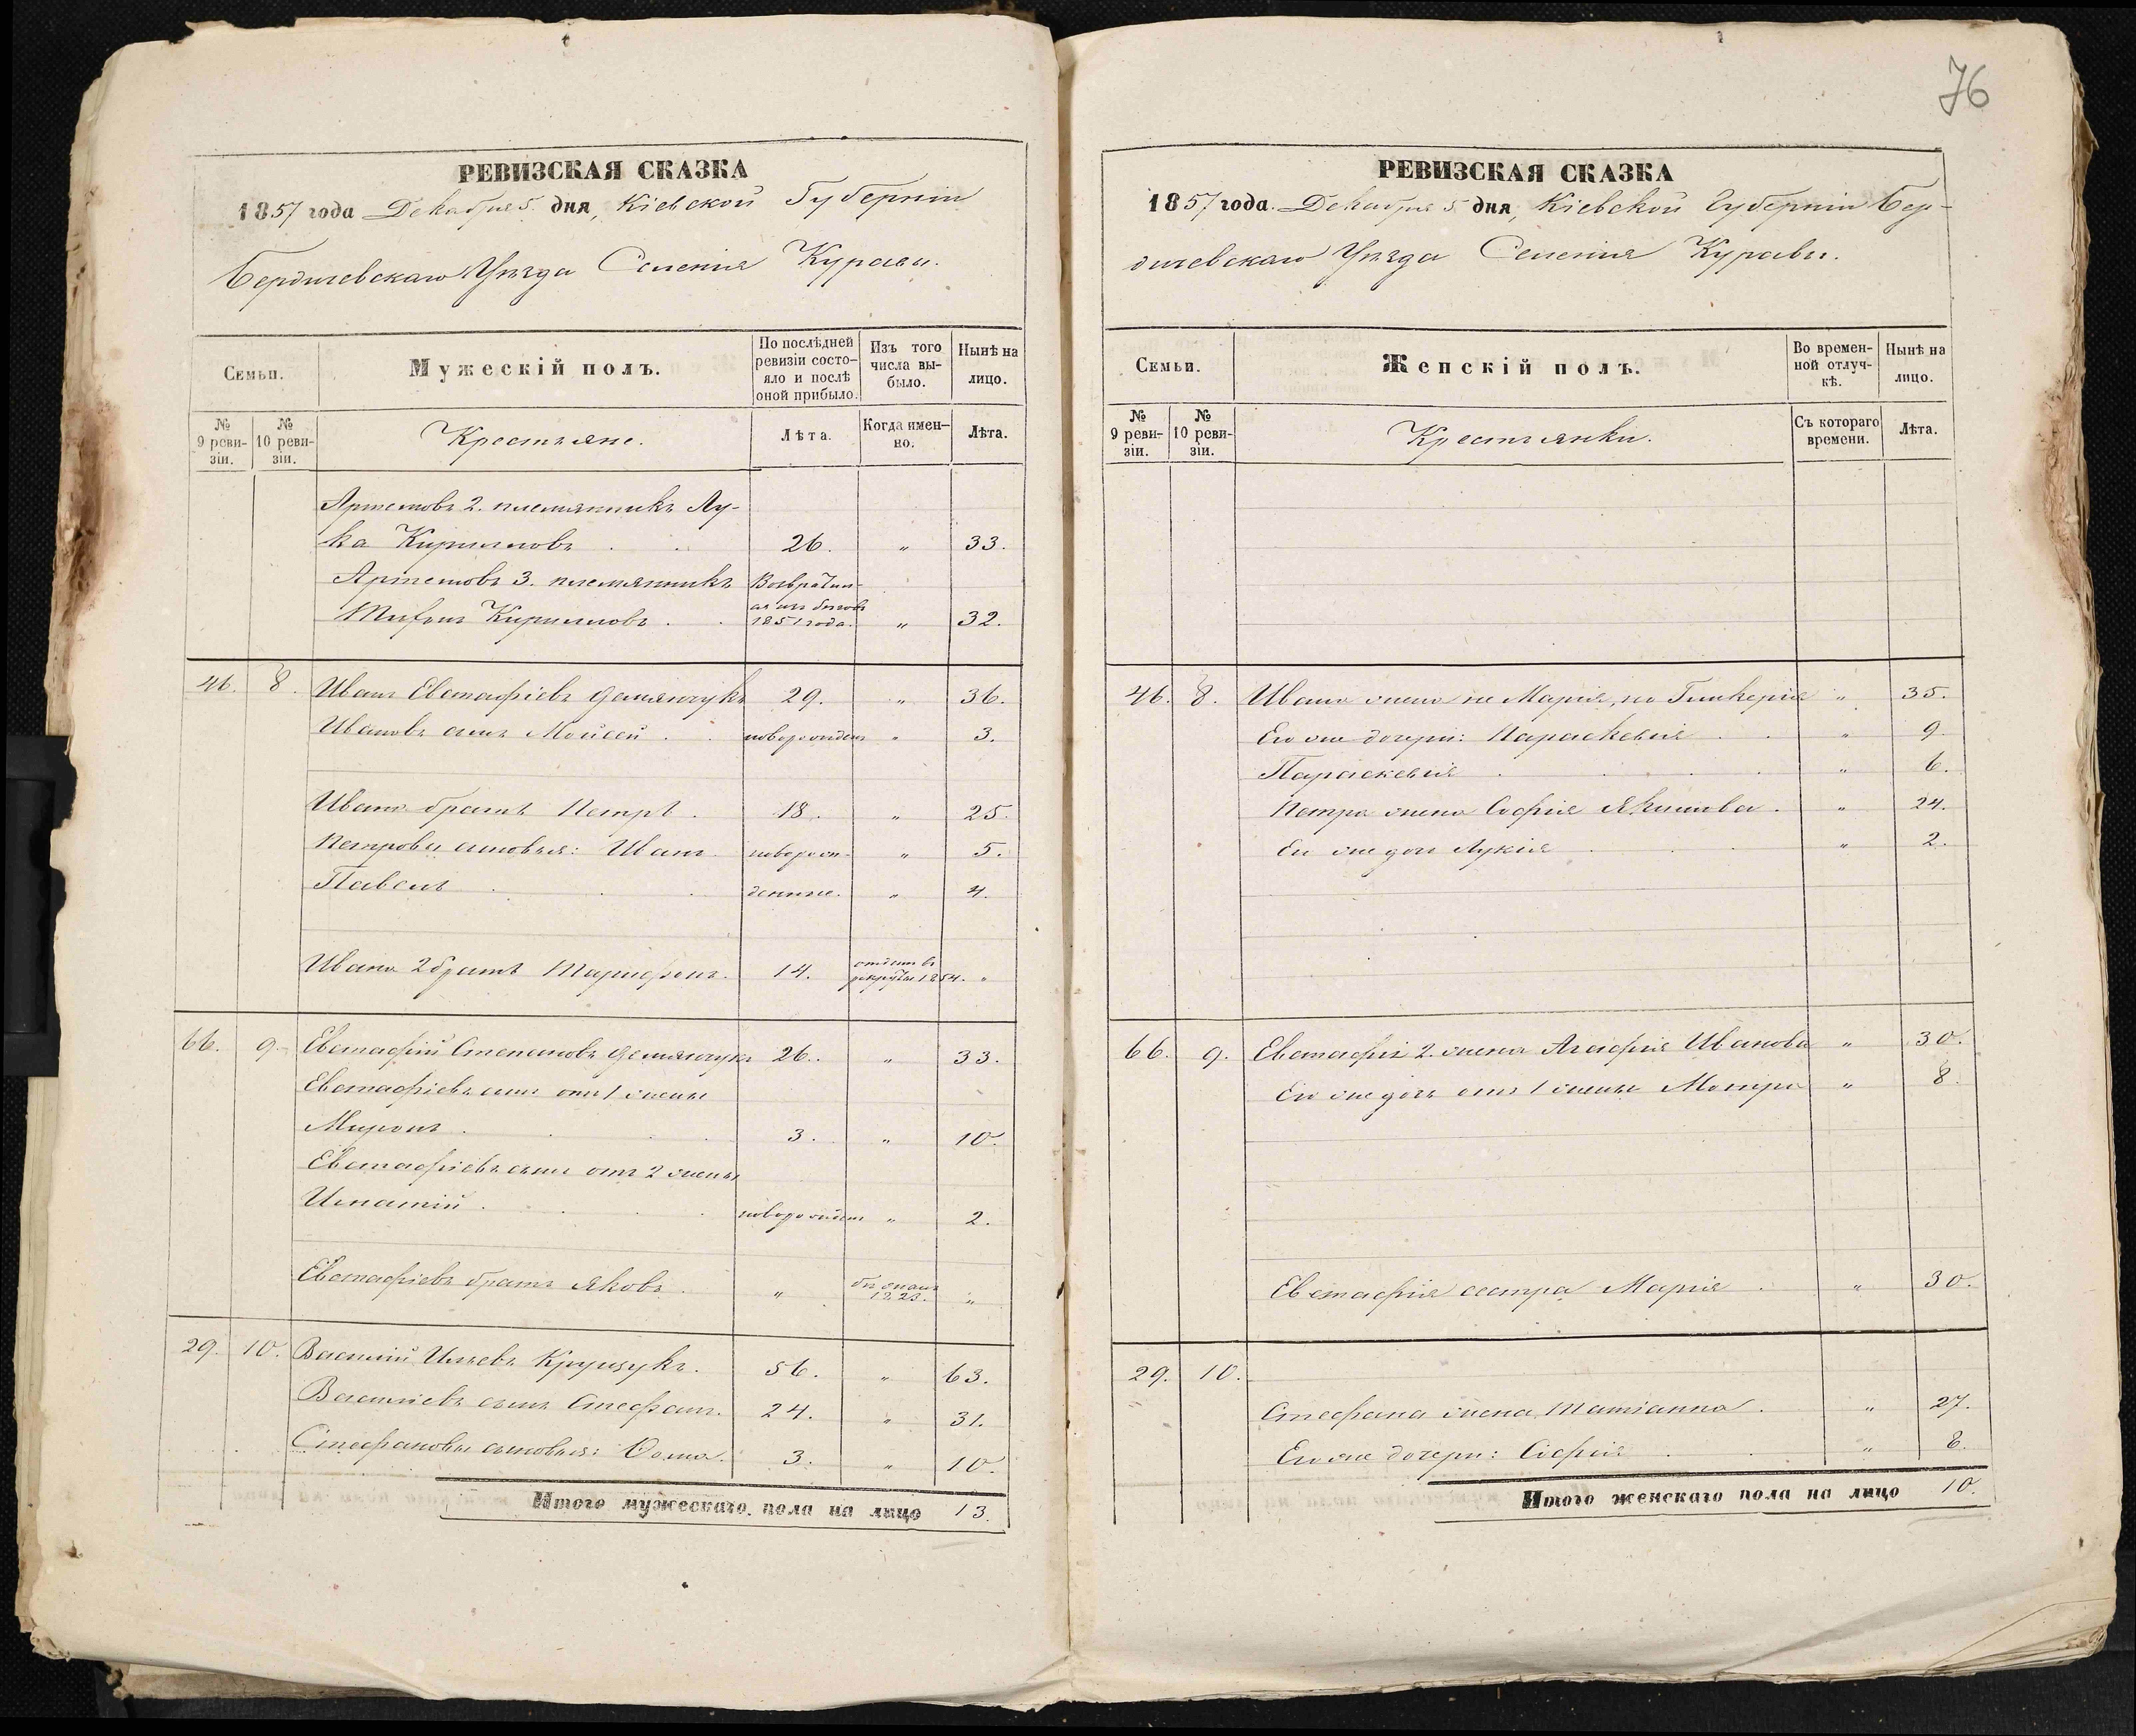 76
РЕВИЗСКАЯ СКАЗКА
1857 года Декабря 5. дня, Кіевской Губерніи
Бердичевскаго Уѣзда Селенія Куравы.
Семьи.
Мужескій полъ.
По послѣдней ревизіи состояло и послѣ оной прибыло.
Изъ того числа выбыло.
Нынѣ на лицо.
№ 9 ревизіи.
№ 10 ревизіи.
Крестьяне.
Лѣта.
Когда именно.
Лѣта.
Артемовъ 2. племянникъ Лу-
ка Кириловъ . . 26. " 33.
Артемовъ 3. племянникъ Возвратил-
ся изъ бѣговъ
Кириловъ . . 1851 года. " 32.
46. 8. Иванъ Евстафіевъ Демянчукъ 29. " 36.
Ивановъ сынъ Мойсей . . новорожден " 3.
Ивана братъ Петръ . 18. " 25.
Петровы сыновья: Иванъ новорож- " 5.
Павелъ . . . денные. " 4.
Ивана 2 братъ 14. отданъ въ
рекруты 1854. "
66. 9. Евстафій Степановъ Демянчукъ 26. " 33.
Евстафіевъ сынъ отъ 1 жены
Миронъ . . . 3. " 10.
Евстафіевъ сынъ отъ 2 жены
Игнатій . . . новорожден " 2.
Евстафіевъ братъ Яковъ . " бѣжалъ
1823. "
29. 10. Василій Ильевъ Крущукъ. 56. " 63.
Василіевъ сынъ Стефанъ. 24. " 31.
Стефановы сыновья: Ѳома. 3. " 10.
Итого мужескаго пола на лицо 13.
РЕВИЗСКАЯ СКАЗКА
1857 года. Декабря 5 дня, Кіевской Губерніи Бер-
дичевскаго Уѣзда Селенія Куравы.
Семьи.
Женскій полъ.
Во временной отлучкѣ.
Нынѣ на лицо.
№ 9 ревизіи.
№ 10 ревизіи.
Крестьянки.
Съ котораго времени.
Лѣта.
46. 8. Ивана жена не Марія, но Гликерія " 35.
Его же дочери: Параскевія . . " 9.
Параскевія . . . . " 6.
Петра жена Софія Якимова . " 24.
Ея же дочь Лукія . . . " 2.
66. 9. Евстафія 2. жена Агафія Иванова " 30.
Его же дочь отъ 1 жены Мотря " 8.
Евстафія сестра Марія . " 30.
29. 10.
Стефана жена Матіанна . " 27.
Его же дочери: Софія . . " 8.
Итого женскаго пола на лицо 10.